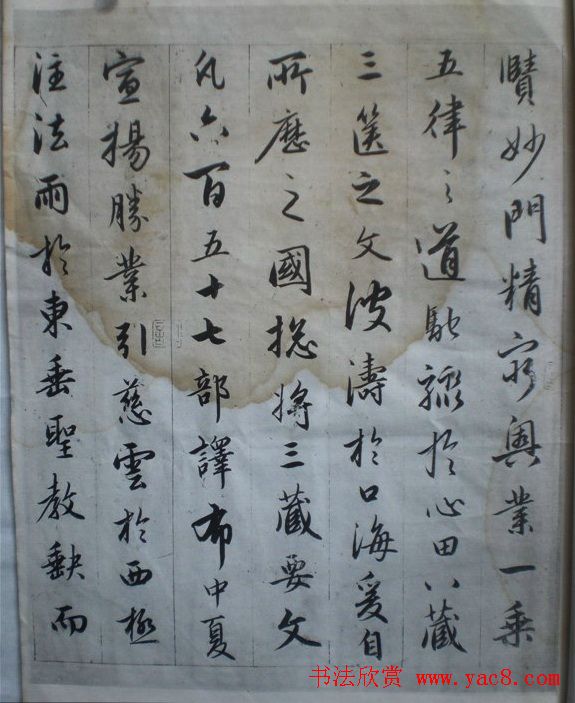 賾妙門精窮奧業一乘
五律之道馳驟於心田八藏
三篋之文波濤於口海爰自
所歷之國揔將三藏要文
凡六百五十七部譯布中夏
宣揚勝業引慈雲於西極
注法雨於東垂聖教缺而
书法欣赏 www.yac8.com